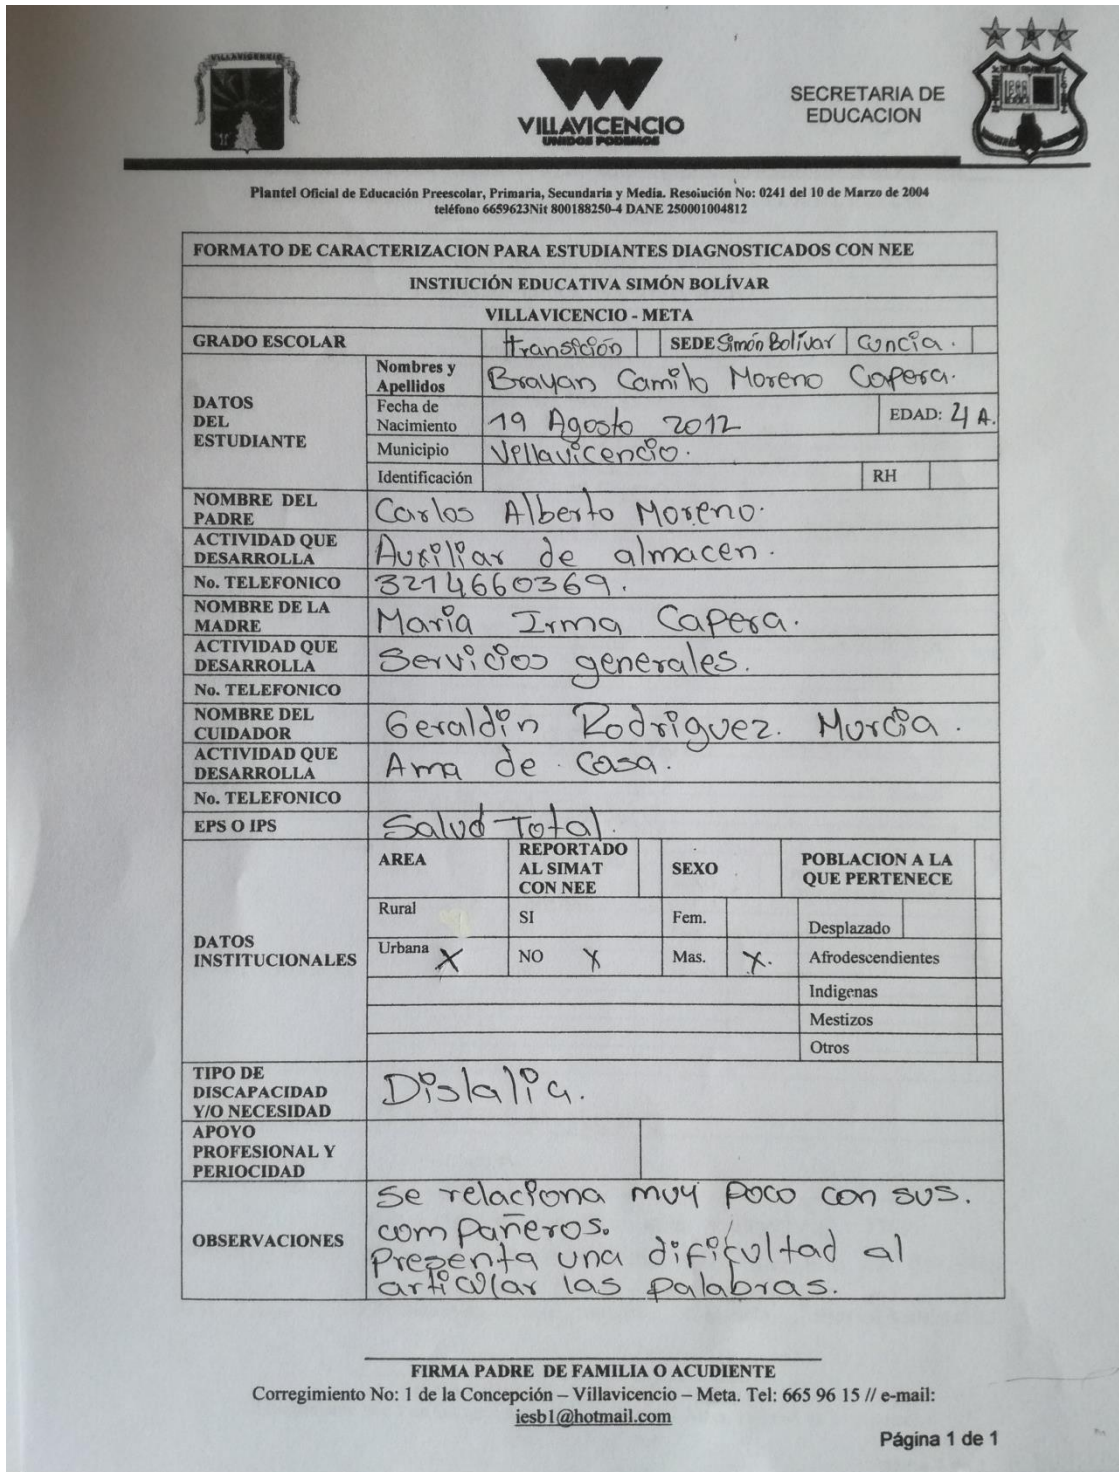 VILLAVICENCIO
VILLAVICENCIO
UNIDOS PODEMOS
SECRETARIA DE
EDUCACION
A B C
Plantel Oficial de Educación Preescolar, Primaria, Secundaria y Media. Resolución No: 0241 del 10 de Marzo de 2004
teléfono 6659623Nit 800188250-4 DANE 250001004812
FORMATO DE CARACTERIZACION PARA ESTUDIANTES DIAGNOSTICADOS CON NEE
INSTIUCIÓN EDUCATIVA SIMÓN BOLÍVAR
VILLAVICENCIO - META
GRADO ESCOLAR transición SEDE Simón Bolívar Cuncia.
DATOS DEL ESTUDIANTE
Nombres y Apellidos Brayan Camilo Moreno Capera.
Fecha de Nacimiento 19 Agosto 2012 EDAD: 4 A.
Municipio Villavicencio.
Identificación RH
NOMBRE DEL PADRE Carlos Alberto Moreno.
ACTIVIDAD QUE DESARROLLA Auxiliar de almacen.
No. TELEFONICO 3214660369.
NOMBRE DE LA MADRE Maria Irma Capera.
ACTIVIDAD QUE DESARROLLA Servicios generales.
No. TELEFONICO
NOMBRE DEL CUIDADOR Geraldin Rodriguez. Murcia.
ACTIVIDAD QUE DESARROLLA Ama de casa.
No. TELEFONICO
EPS O IPS Salud Total.
DATOS INSTITUCIONALES
AREA REPORTADO AL SIMAT CON NEE SEXO POBLACION A LA QUE PERTENECE
Rural SI Fem. Desplazado
Urbana X NO X Mas. X. Afrodescendientes
Indigenas
Mestizos
Otros
TIPO DE DISCAPACIDAD Y/O NECESIDAD Dislalia.
APOYO PROFESIONAL Y PERIOCIDAD
OBSERVACIONES
Se relaciona muy poco con sus.
compañeros.
Presenta una dificultad al
articular las palabras.
FIRMA PADRE DE FAMILIA O ACUDIENTE
Corregimiento No: 1 de la Concepción – Villavicencio – Meta. Tel: 665 96 15 // e-mail:
iesb1@hotmail.com
Página 1 de 1